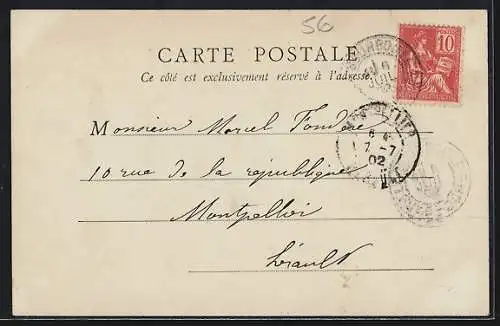 56
CARTE POSTALE
Ce côté est exclusivement réservé à l'adresse.
10
Monsieur Marcel Fondère
10 rue de la république
Montpellier
Hérault
MONTPELLIER
7 - 7
02